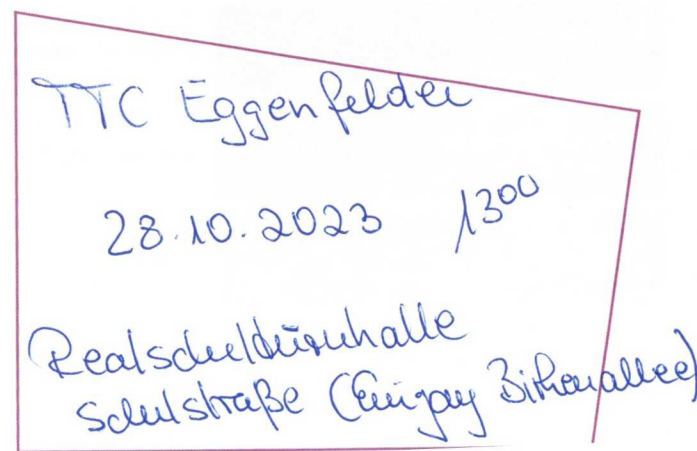 TTC Eggenfelden
28.10.2023 13⁰⁰
Realschulturnhalle
Schulstraße (Eingang Birkenallee)